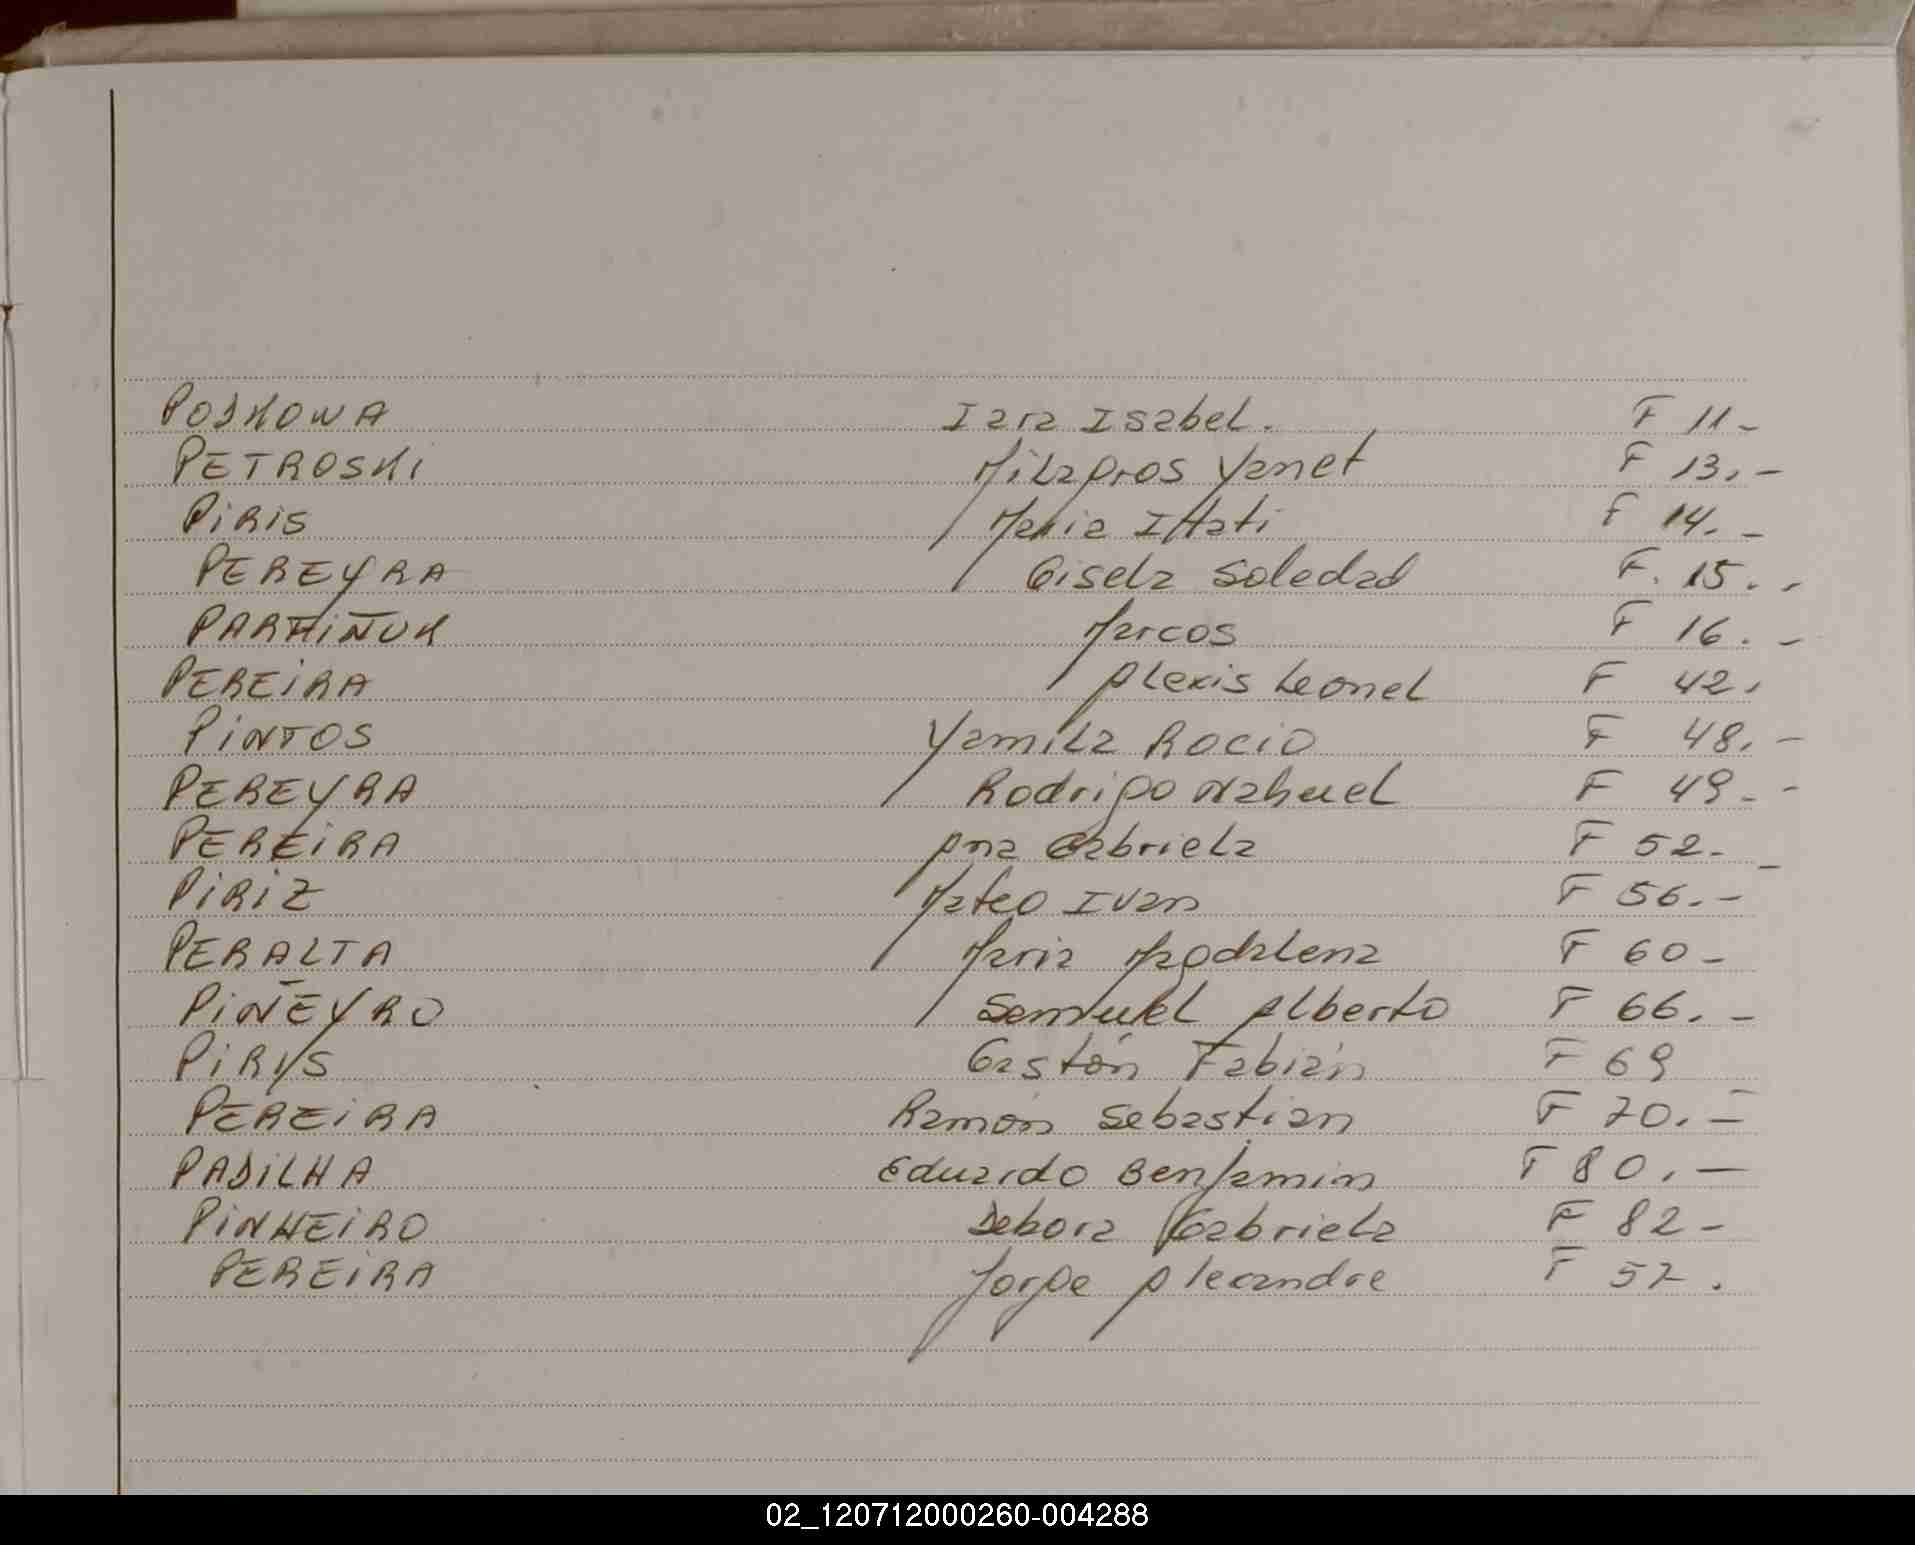 PODKOWA Iara Isabel. F 11-
PETROSKI Milagros Yanet F 13.-
PIRIS Maria Itati F 14.-
PEREYRA Gisela Soledad F. 15.-
Marcos F 16.-
PEREIRA Alexis Leonel F 42.
PINTOS Yamila Rocio F 48.-
PEREYRA Rodrigo Nahuel F 49.-
PEREIRA Ana Gabriela F 52.-
PIRIZ Mateo Ivan F 56.-
PERALTA Maria Magdalena F 60-
PIÑEYRO Samuel Alberto F 66.-
PIRYS Gastón Fabián F 69
PEREIRA Ramón Sebastian F 70.-
PADILHA Eduardo Benjamin F 80.-
PINHEIRO Debora Gabriela F 82-
PEREIRA Jorge Alexandre F 57.
02_120712000260-004288